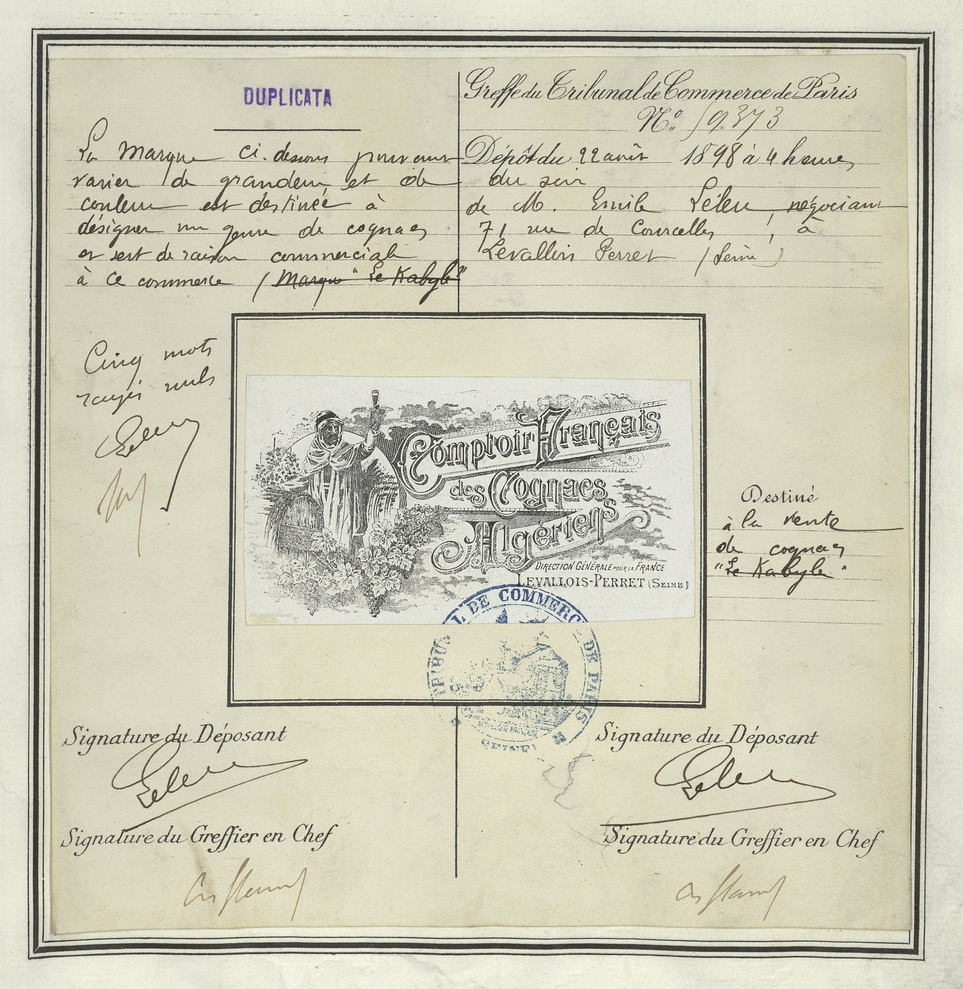 DUPLICATA
La Marque ci-dessous pouvant
varier de grandeur et de
couleur est destinée à
désigner un genre de cognac
et sert de raison commerciale
à ce commerce (Marque "Le Kabyle"
Cinq mots
rayés nuls
Leleu
Greffe du Tribunal de Commerce de Paris
N°. 59.373
Dépôt du 22 août 1898 à 4 heures
du soir
de M. Emile Leleu, négociant
71 rue de Courcelles, à
Levallois Perret (Seine)
Comptoir Français
des Cognacs
Algériens
DIRECTION GÉNÉRALE POUR LA FRANCE
LEVALLOIS-PERRET (SEINE)
TRIBUNAL DE COMMERCE DE PARIS
SEINE
Destiné
à la vente
de cognacs
"Le Kabyle"
Signature du Déposant
Leleu
Signature du Greffier en Chef
Signature du Déposant
Leleu
Signature du Greffier en Chef